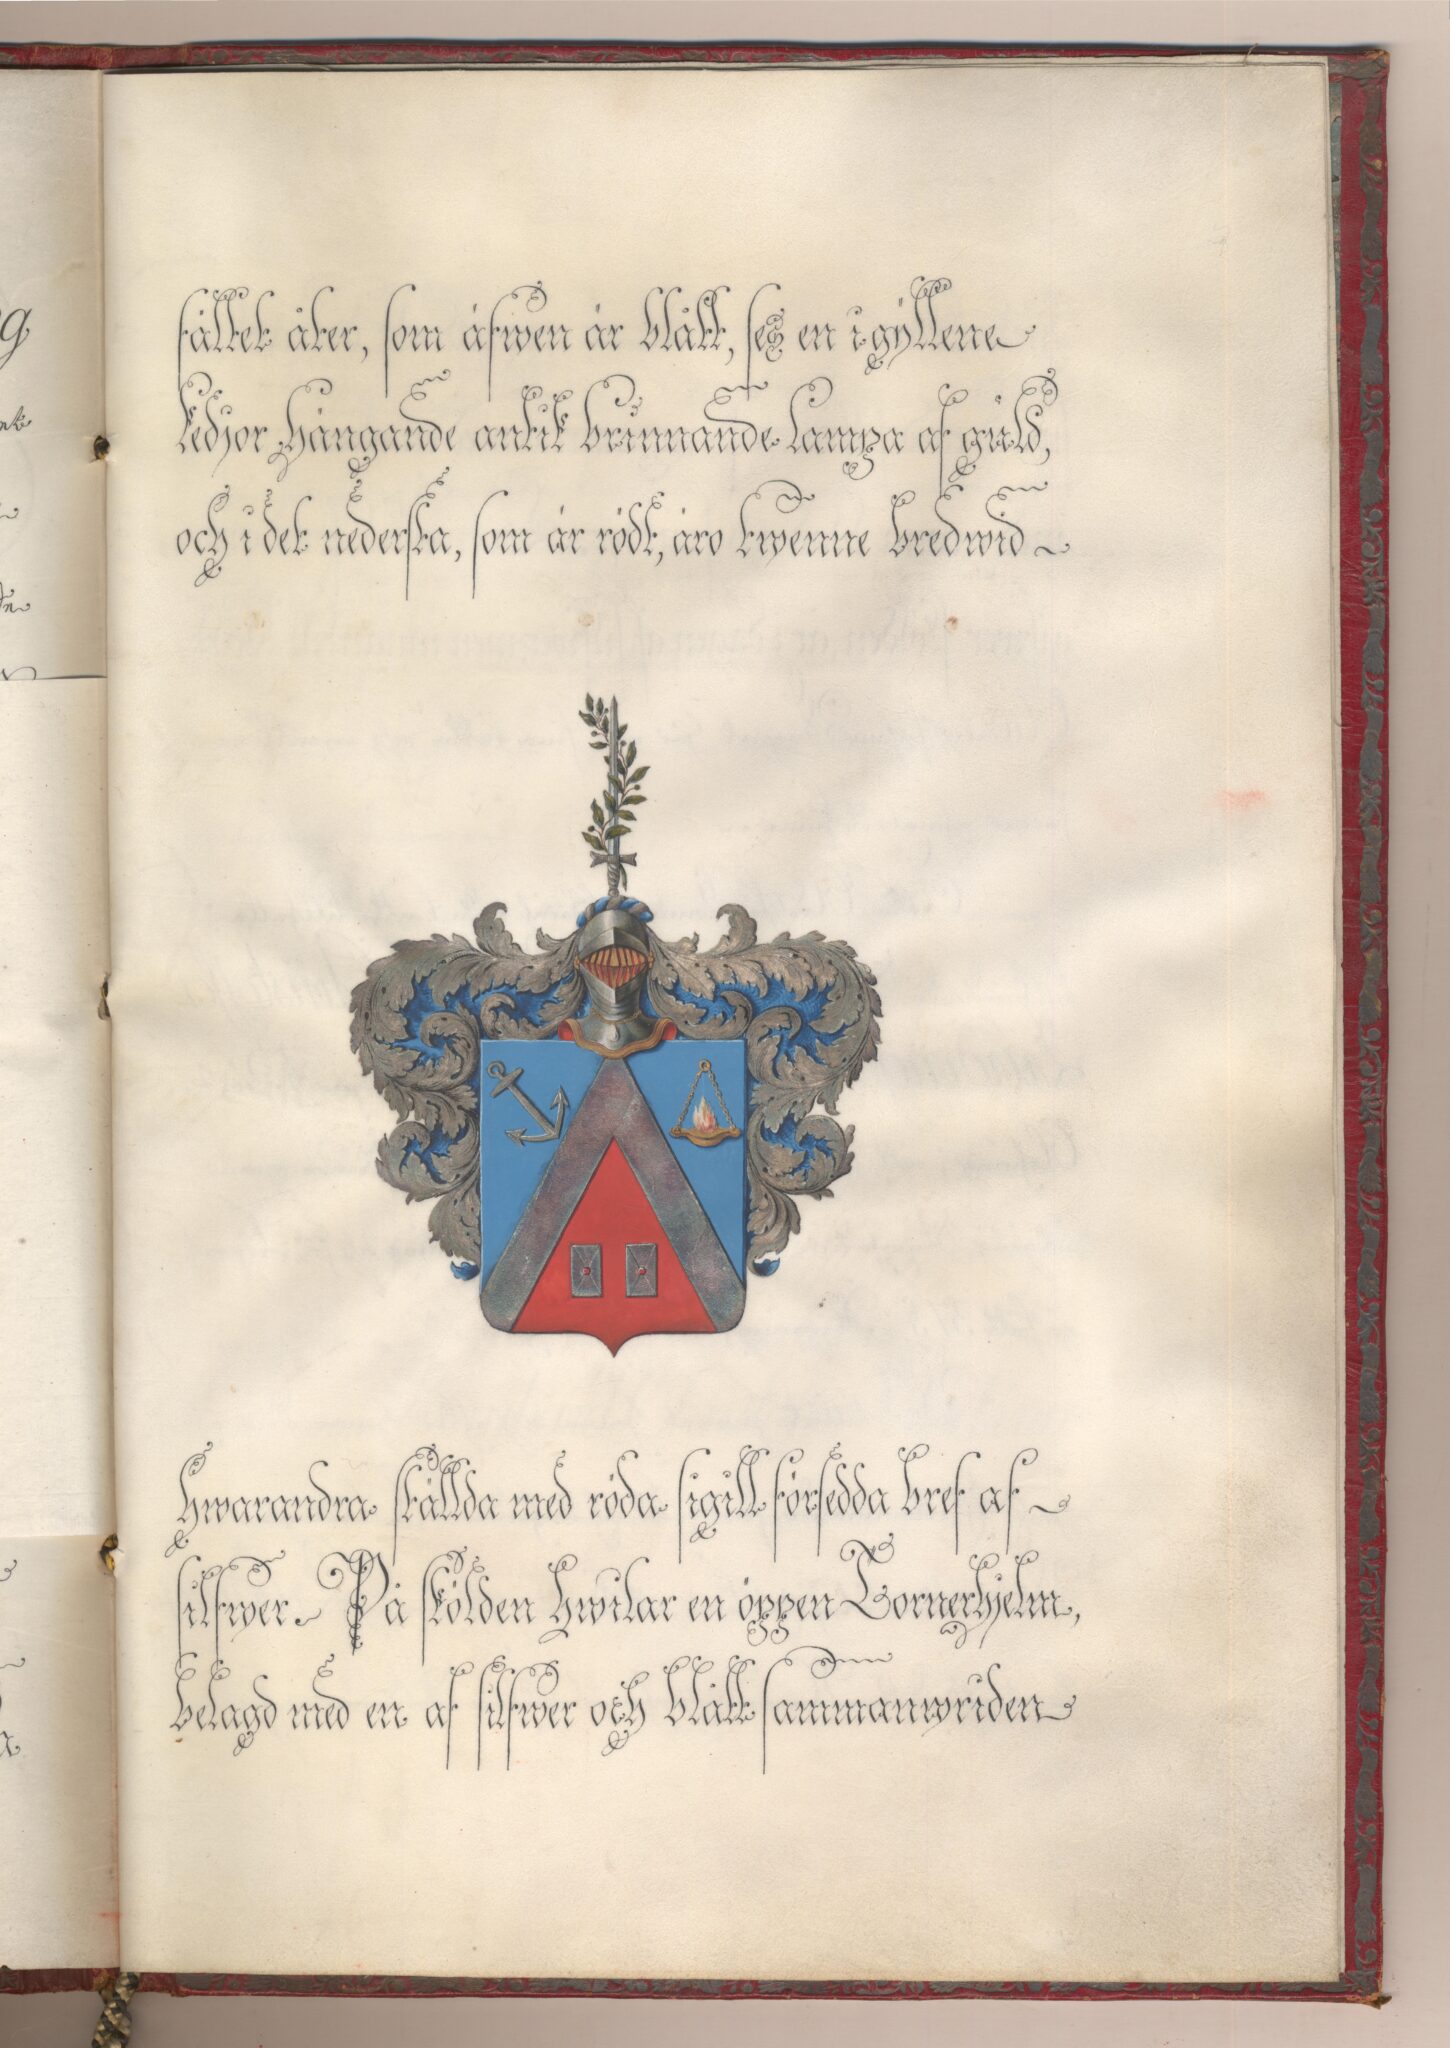 fältet åter, som äfwen är blått, ses en i gyllene
kedjor hängande antik brinnande lampa af guld,
och i det nedersta, som är rödt, äro twenne bredwid
hwarandra ställda med röda sigill försedda bref af
silfwer. På skölden hwilar en öppen Tornerhjelm,
belagd med en af silfwer och blått sammanwriden